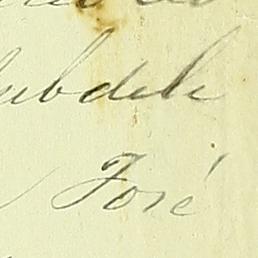 subdele
José